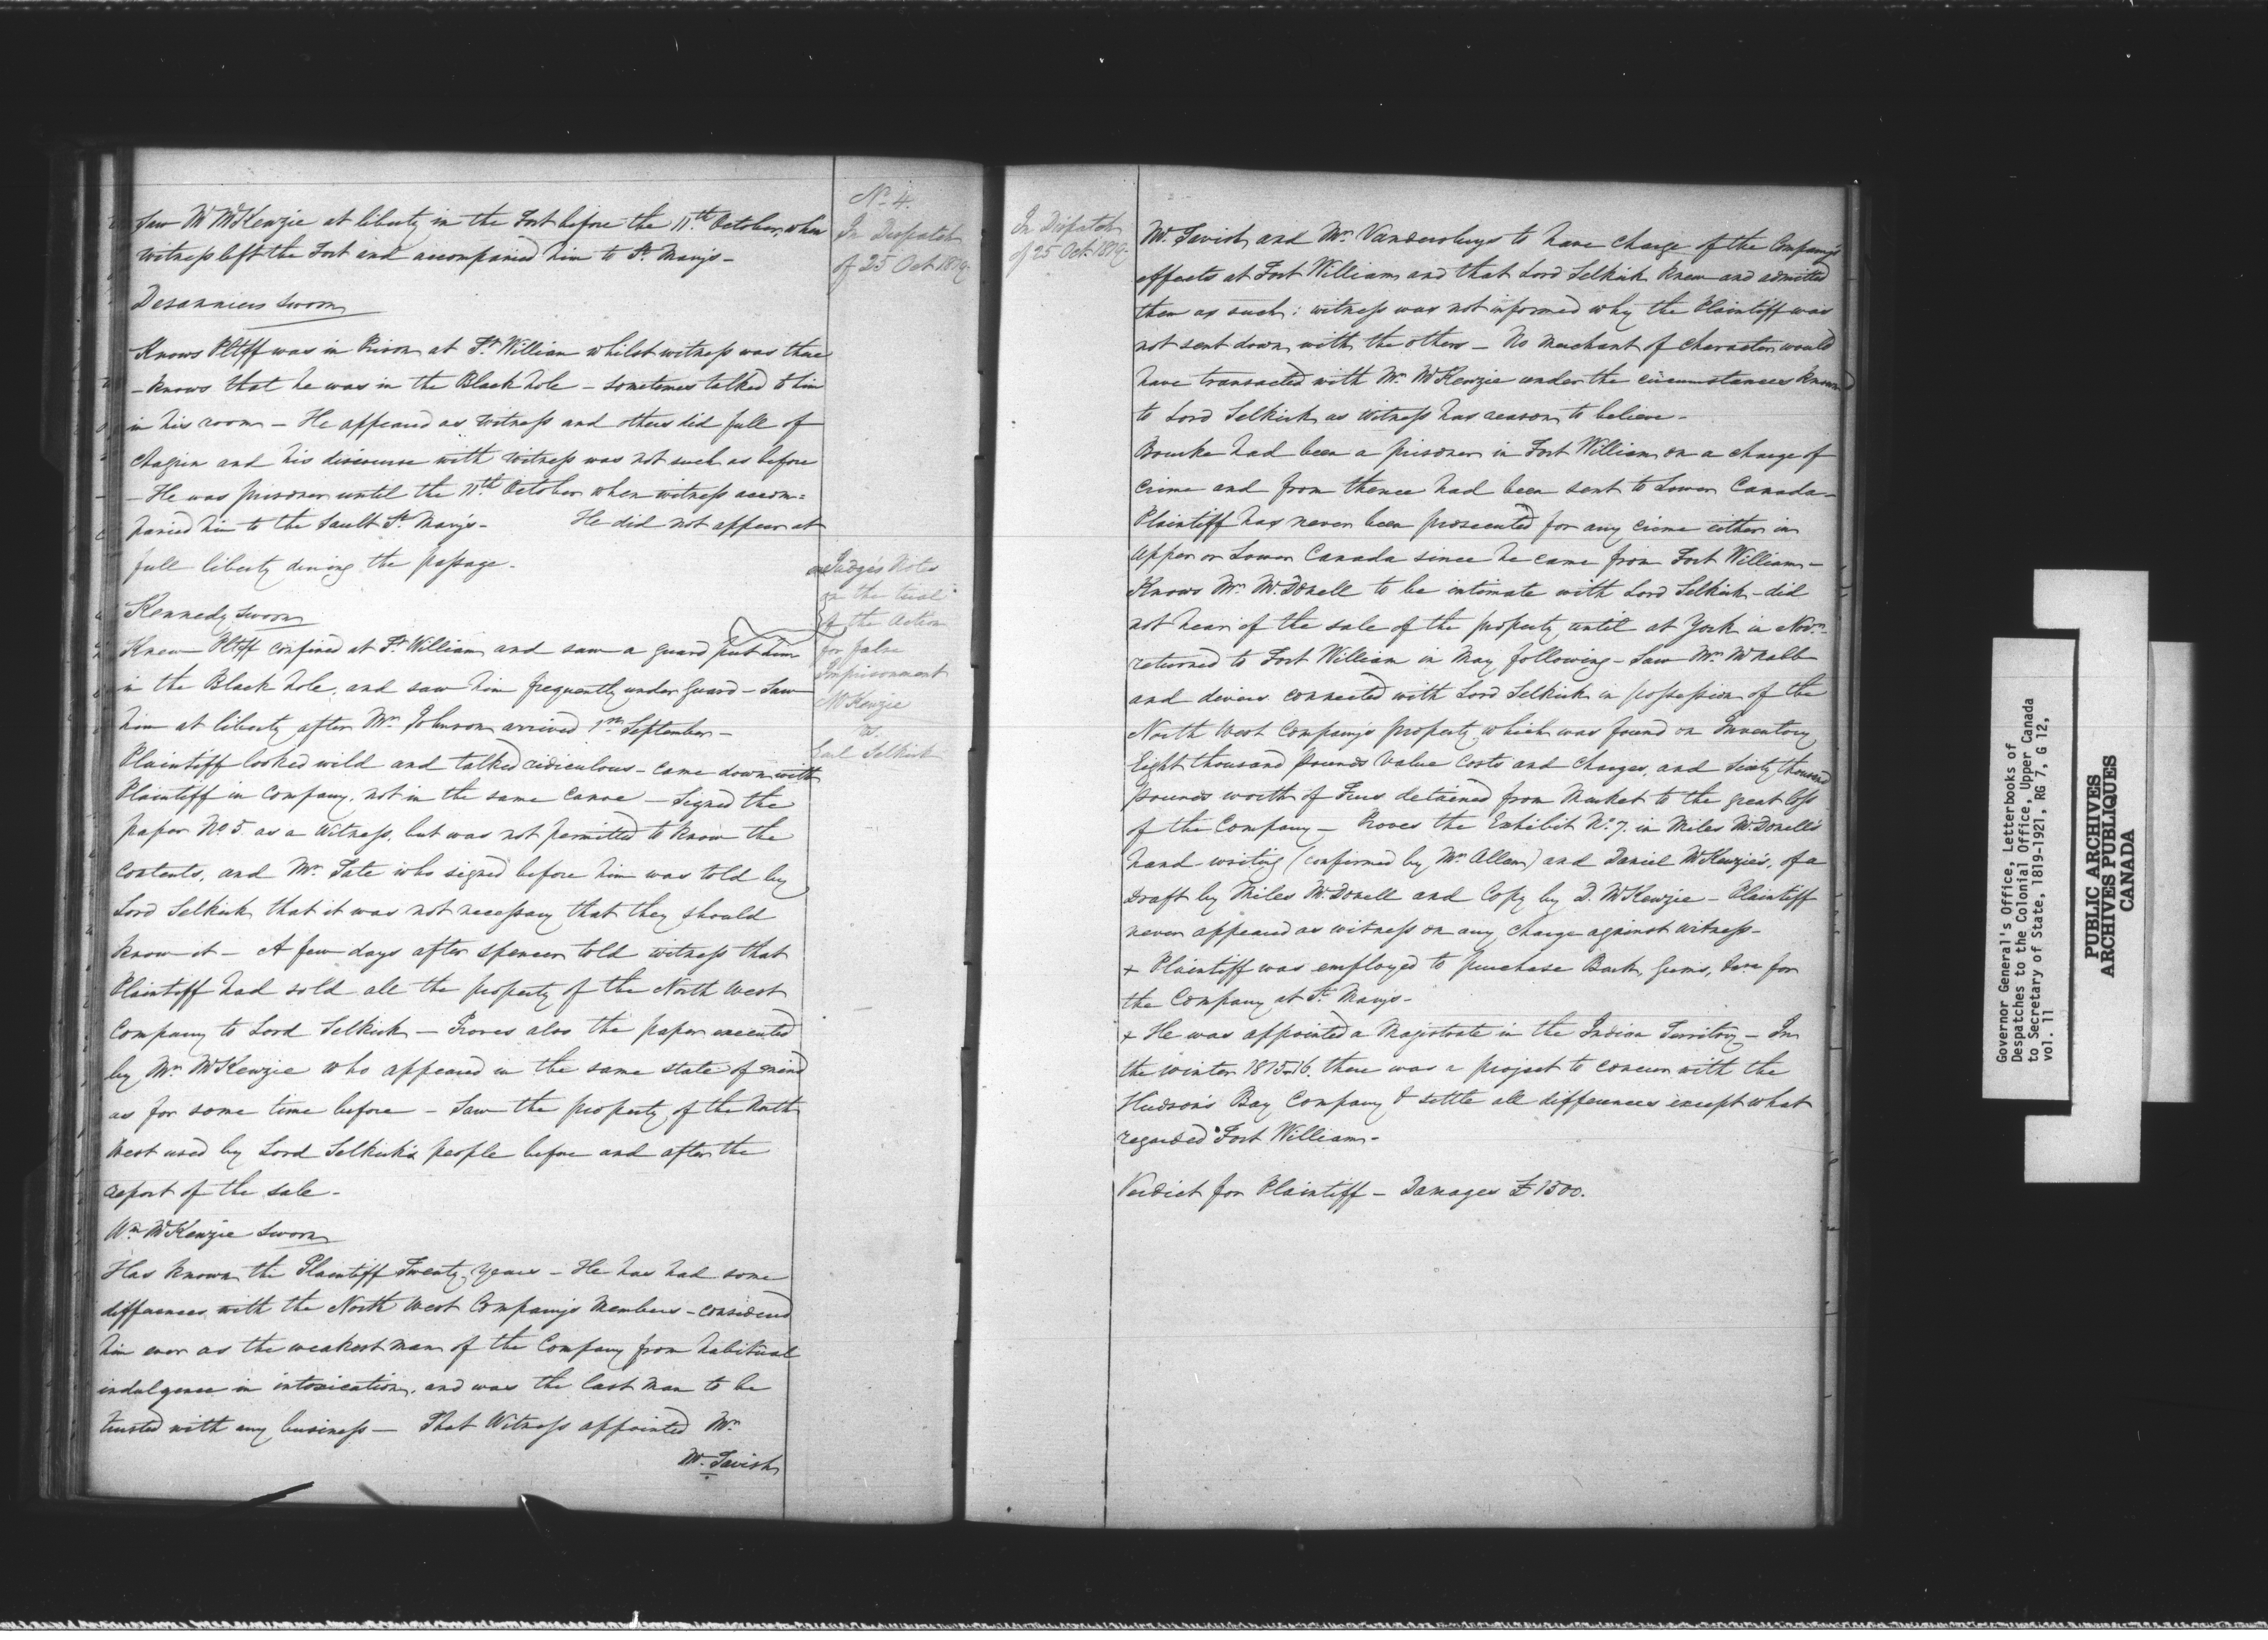 Saw Mr McKenzie at liberty in the Fort before the 11th October, when
witness left the Fort and accompanied him to St Mary's -
Desanniers sworn
Knows Pltff was in Prison at Ft William whilst witness was there
- knows that he was in the Black hole - sometimes talked to him
in his room - He appeared as witness and others did full of
chagrin and his discourse with witness was not such as before
- He was prisoner until the 11th October when witness accom=
panied him to the Sault St Mary's - He did not appear at
full liberty during the passage -
Kennedy sworn
Knew Pltff confined at Ft William and saw a guard put him
in the Black hole, and saw him frequently under Guard - Saw
him at liberty after Mr Johnson arrived 1st September -
Plaintiff looked wild and talked ridiculous - came down with
Plaintiff in Company, not in the same Canoe - Signed the
paper No 5. as a Witness, but was not permitted to know the
contents, and Mr Tate who signed before him was told by
Lord Selkirk that it was not necessary that they should
know it - A few days after Spencer told witness that
Plaintiff had sold all the property of the North West
Company to Lord Selkirk - Proves also the paper executed
by Mr McKenzie who appeared in the same state of mind
as for some time before - Saw the property of the North
West used by Lord Selkirk's people before and after the
report of the sale -
Wm McKenzie sworn
Has known the Plaintiff Twenty years - He has had some
differences with the North West Company's Members - considered
him ever as the weakest man of the Company from habitual
indulgence in intoxication, and was the last man to be
trusted with any business - That Witness appointed Mr
Mc.Tavish
No 4.
In Despatch
of 25 Oct 1819
Judge's Notes
on the trial
of the Action
for false
Imprisonment
McKenzie
vs.
Earl Selkirk
In Dispatch
of 25 Oct 1819
Mc.Tavish and Mr Vandersluys to have charge of the Company's
effects at Fort William and that Lord Selkirk knew and admitted
them as such: witness was not informed why the Plaintiff was
not sent down with the others - No merchant of character would
have transacted with Mr McKenzie under the circumstances known
to Lord Selkirk as witness has reason to believe -
Bourke had been a prisoner in Fort William on a charge of
crime and from thence had been sent to Lower Canada -
Plaintiff has never been prosecuted for any crime either in
Upper or Lower Canada since he came from Fort William -
Knows Mr McDonell to be intimate with Lord Selkirk - did
not hear of the sale of the property until at York in Novr -
returned to Fort William in May following - Saw Mr McNabb
and divers connected with Lord Selkirk in possession of the
North West Company's property which was found on Inventory
Eight thousand pounds value Costs and Charges, and Sixty thousand
pounds worth of Furs detained from Market to the great loss
of the Company - Proves the Exhibit No. 7. in Miles McDonell's
hand writing (confirmed by Mr Allan) and Daniel McKenzie's, of a
Draft by Miles McDonell and Copy by D. McKenzie - Plaintiff
never appeared as witness on any charge against witness -
+ Plaintiff was employed to purchase Bark, Gums, &c for
the Company at St Mary's -
+ He was appointed a Magistrate in the Indian Territory - In
the winter 1815-16. there was a project to concur with the
Hudson's Bay Company & settle all differences except what
regarded Fort William -
Verdict for Plaintiff - Damages £1500.
Governor General's Office, Letterbooks of
Despatches to the Colonial Office, Upper Canada
to Secretary of State, 1819-1921, RG 7, G 12,
vol. 11
PUBLIC ARCHIVES
ARCHIVES PUBLIQUES
CANADA